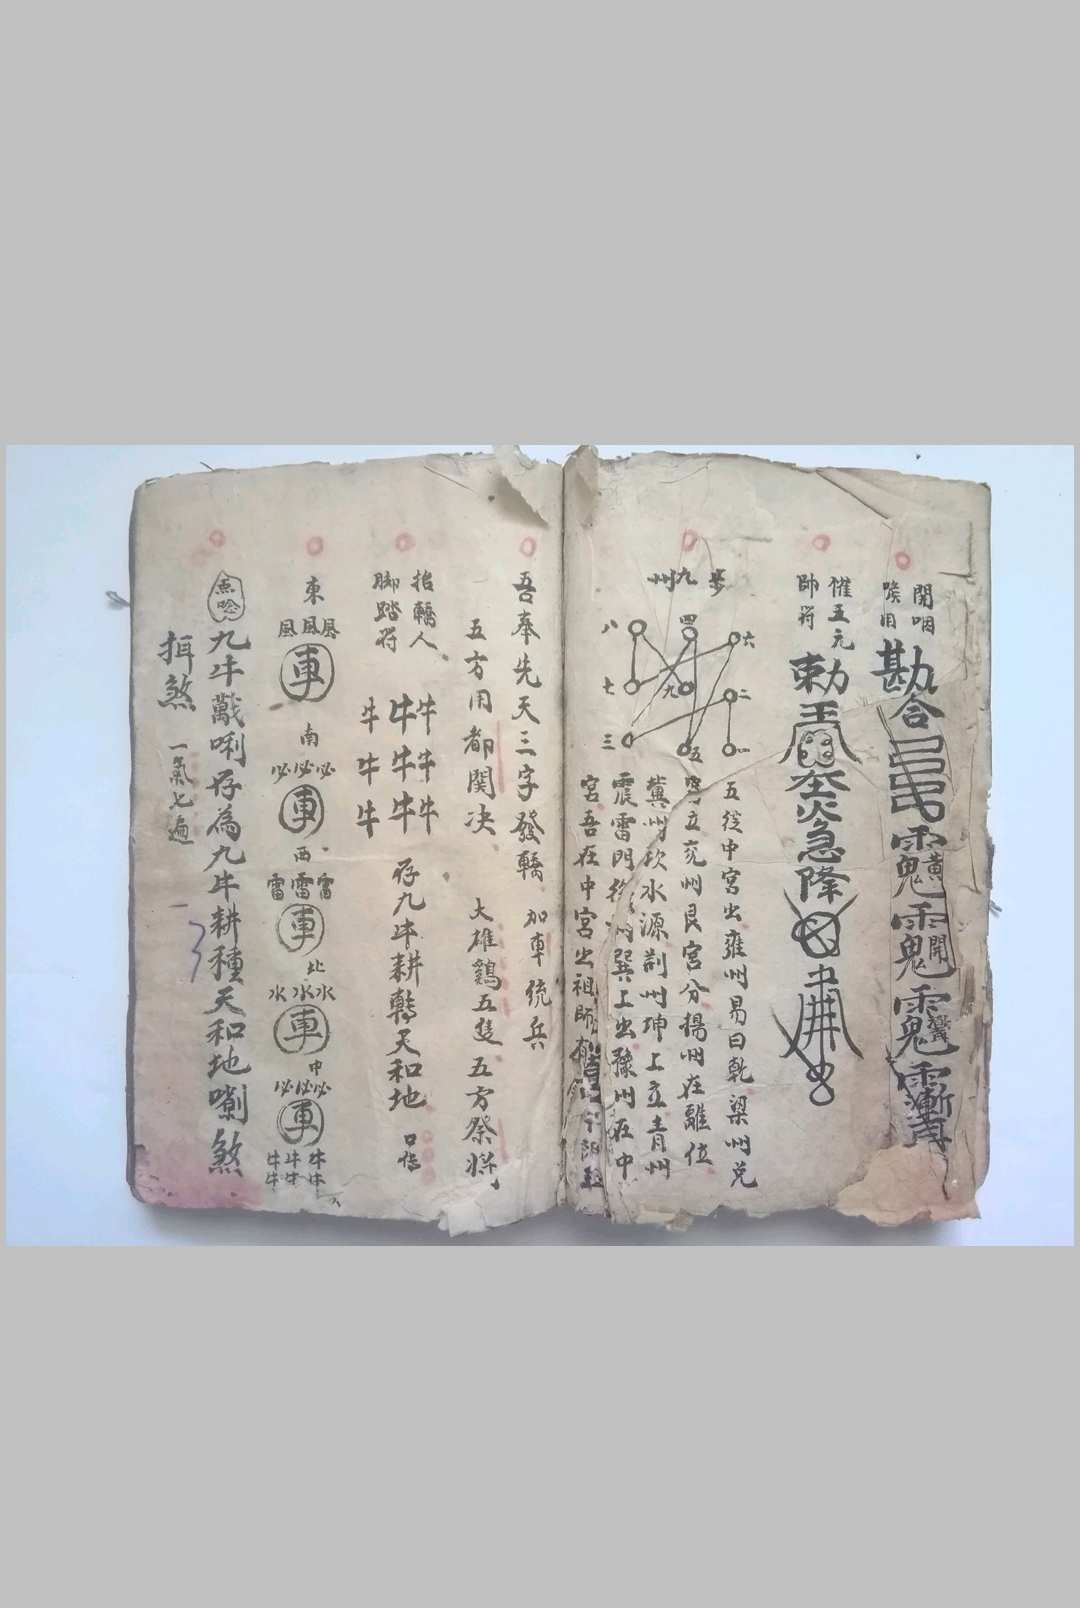 開咽
喉用
勘合
催五元
帥符
勅
急降
步九州
八 四 六
七 九 二
三 五 一
五從中宮出雍州易曰乾梁州兌
立兗州艮宮分揚州在離位
冀州坎水源荊州坤上立青州
震雷門徐州巽上出豫州在中
宮吾在中宮出祖師
吾奉先天三字發轎 加車統兵
五方用都関决 大雄鷄五隻五方祭將
抬轎人
脚踏符
牛牛牛
牛牛牛
牛牛牛
存九牛耕轉天和地 口傳
東
風風風
車
南
必必必
車
西
雷雷雷
車
北
水水水
車
中
必必必
車
牛牛牛
牛牛牛
九牛戴唎存為九牛耕種天和地煞
煞 一氣七遍